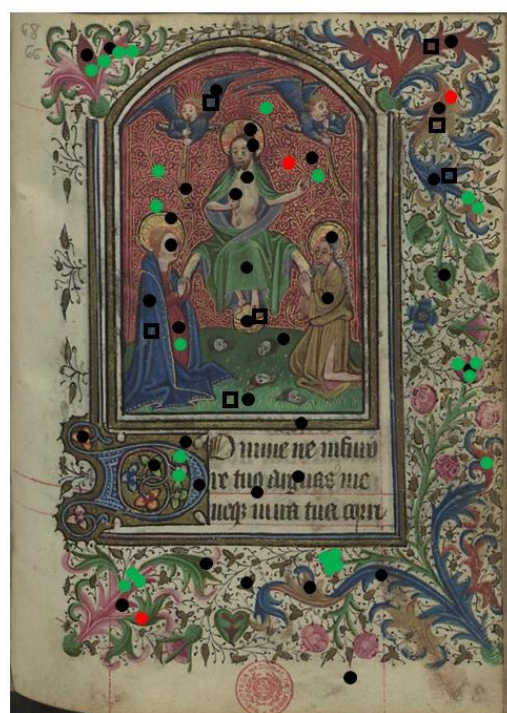 68
66
Domine ne infuro
re tuo arguas me
neq in ira tua corri